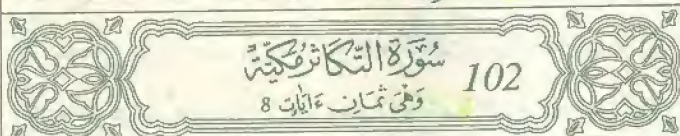 سُورَةُ التَّكَاثُرِ مَكِّيَّةٌ 102
وَهْىَ ثَمَانِ ءَايَاتٍ 8